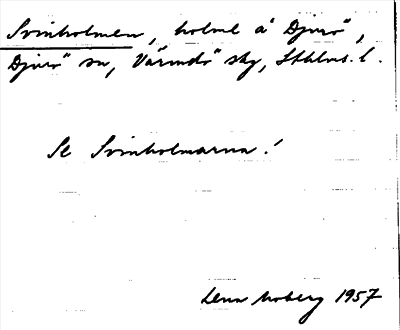 Svinholmen, holme å Djurö,
Djurö sn, Värmdö sky, Sthlms. l.
Se Svinholmarna!
Lena Moberg 1957